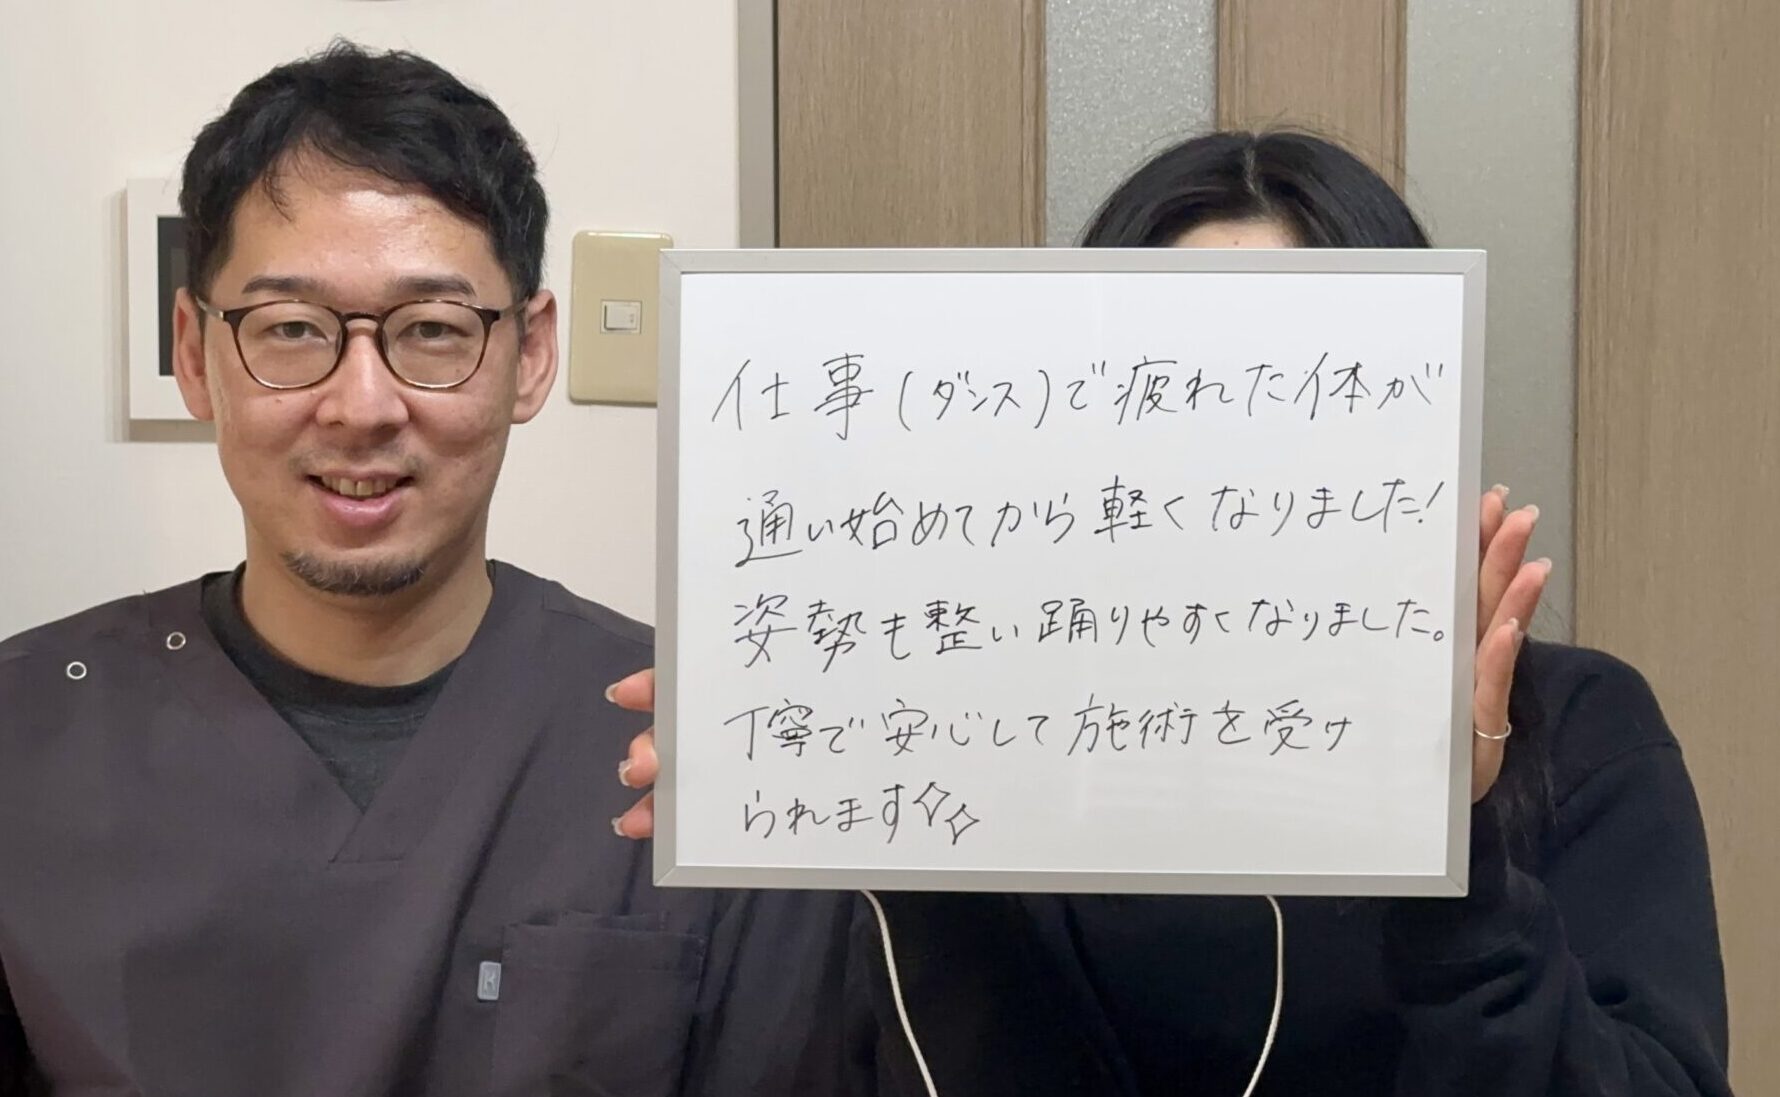 仕事(ダンス)で疲れた体が
通い始めてから軽くなりました!
姿勢も整い踊りやすくなりました。
丁寧で安心して施術を受け
られます✧✧